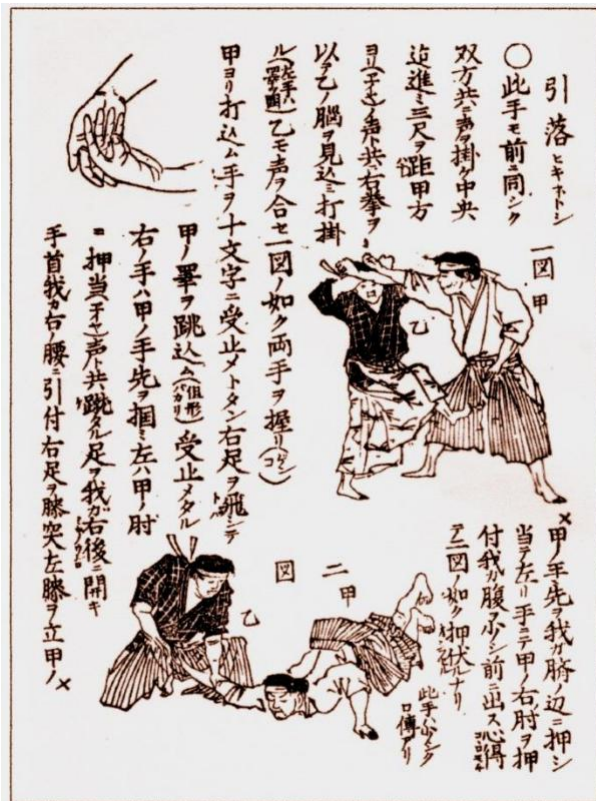 引落 ヒキホトシ
〇此手モ前ニ同シク
双方共ニ声ヲ掛ケ中央
迠進ミ三尺ヲ距甲方
ヨリ(ヱヤ)ノ声ト共ニ右拳ヲ
以テ乙ノ脳ヲ見込ミ打掛
ル(左手ハ)乙モ声ヲ合セ一図ノ如ク両手ヲ握リ(コブシ)
甲ヨリ打込ム手ヲ十文字ニ受止メトタン右足ヲ飛シテ
甲ノ睾ヲ跳込ム(但形バカリ)受止メタル
右ノ手ハ甲ノ手先ヲ掴ミ左ハ甲ノ肘
ニ押当(ヱヤ)声ト共蹴タル足ヲ我ガ右後ニ開キ
手首我カ右ノ腰ニ引付右足ヲ膝突左膝ヲ立甲ノ×
一図
甲
乙
×甲ノ手先ヲ我カ臍ノ辺ニ押シ
当テ左リ手ニテ甲ノ右肘ヲ押
付我カ腹ヲ少シ前ニ出ス心得
テ二図ノ如ク押伏ルナリ
此手ハ少シク
口傳アリ
二図
甲
乙